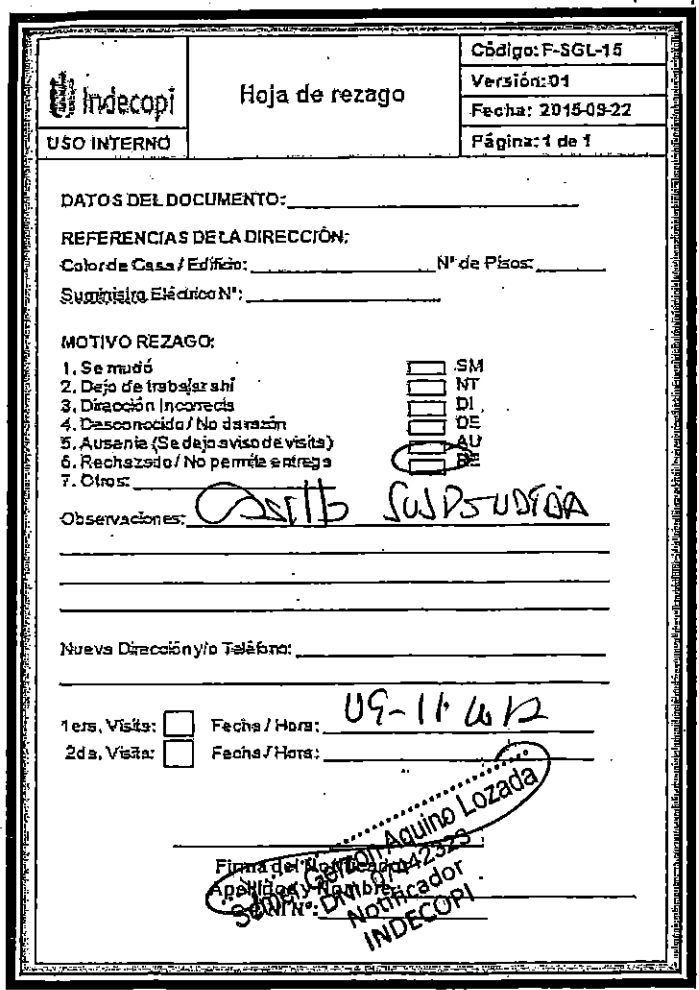 Indecopi
USO INTERNO
Hoja de rezago
Código: F-SGL-15
Versión: 01
Fecha: 2015-09-22
Página: 1 de 1
DATOS DEL DOCUMENTO:
REFERENCIAS DE LA DIRECCIÓN:
Color de Casa / Edificio: N° de Pisos:
Suministro Eléctrico N°:
MOTIVO REZAGO:
1. Se mudó SM
2. Dejo de trabajar ahí NT
3. Dirección Incorrecta DI
4. Desconocido / No da razón DE
5. Ausente (Se dejo aviso de visita) AU
6. Rechazado / No permite entrega RE
7. Otros:
Observaciones:
Nueva Dirección y/o Teléfono:
1era. Visita: Fecha / Hora:
2da. Visita: Fecha / Hora:
Firma del Notificador
Apellidos y Nombre:
DNI N°:
Gerzon Aquino Lozada
DNI. 07442323
Notificador
INDECOPI